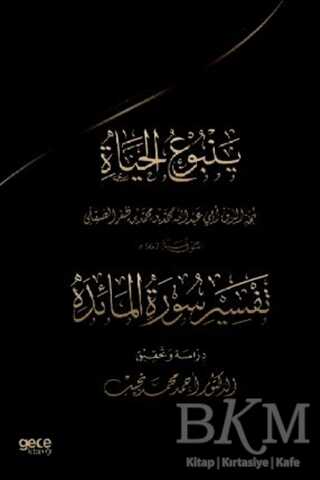 ينبوع الحياة
لحجة الدين أبي عبد الله محمد بن محمد بن ظفر الصقلي
تفسير سورة المائدة
دراسة وتحقيق
الدكتور أحمد محمد نجيب
gece
kitaplığı
BKM
Kitap | Kırtasiye | Kafe